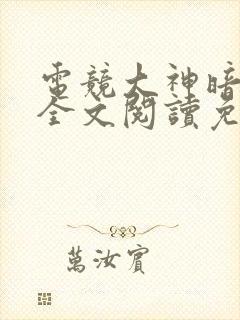 電競大神暗
全文閱讀免
萬汝賓